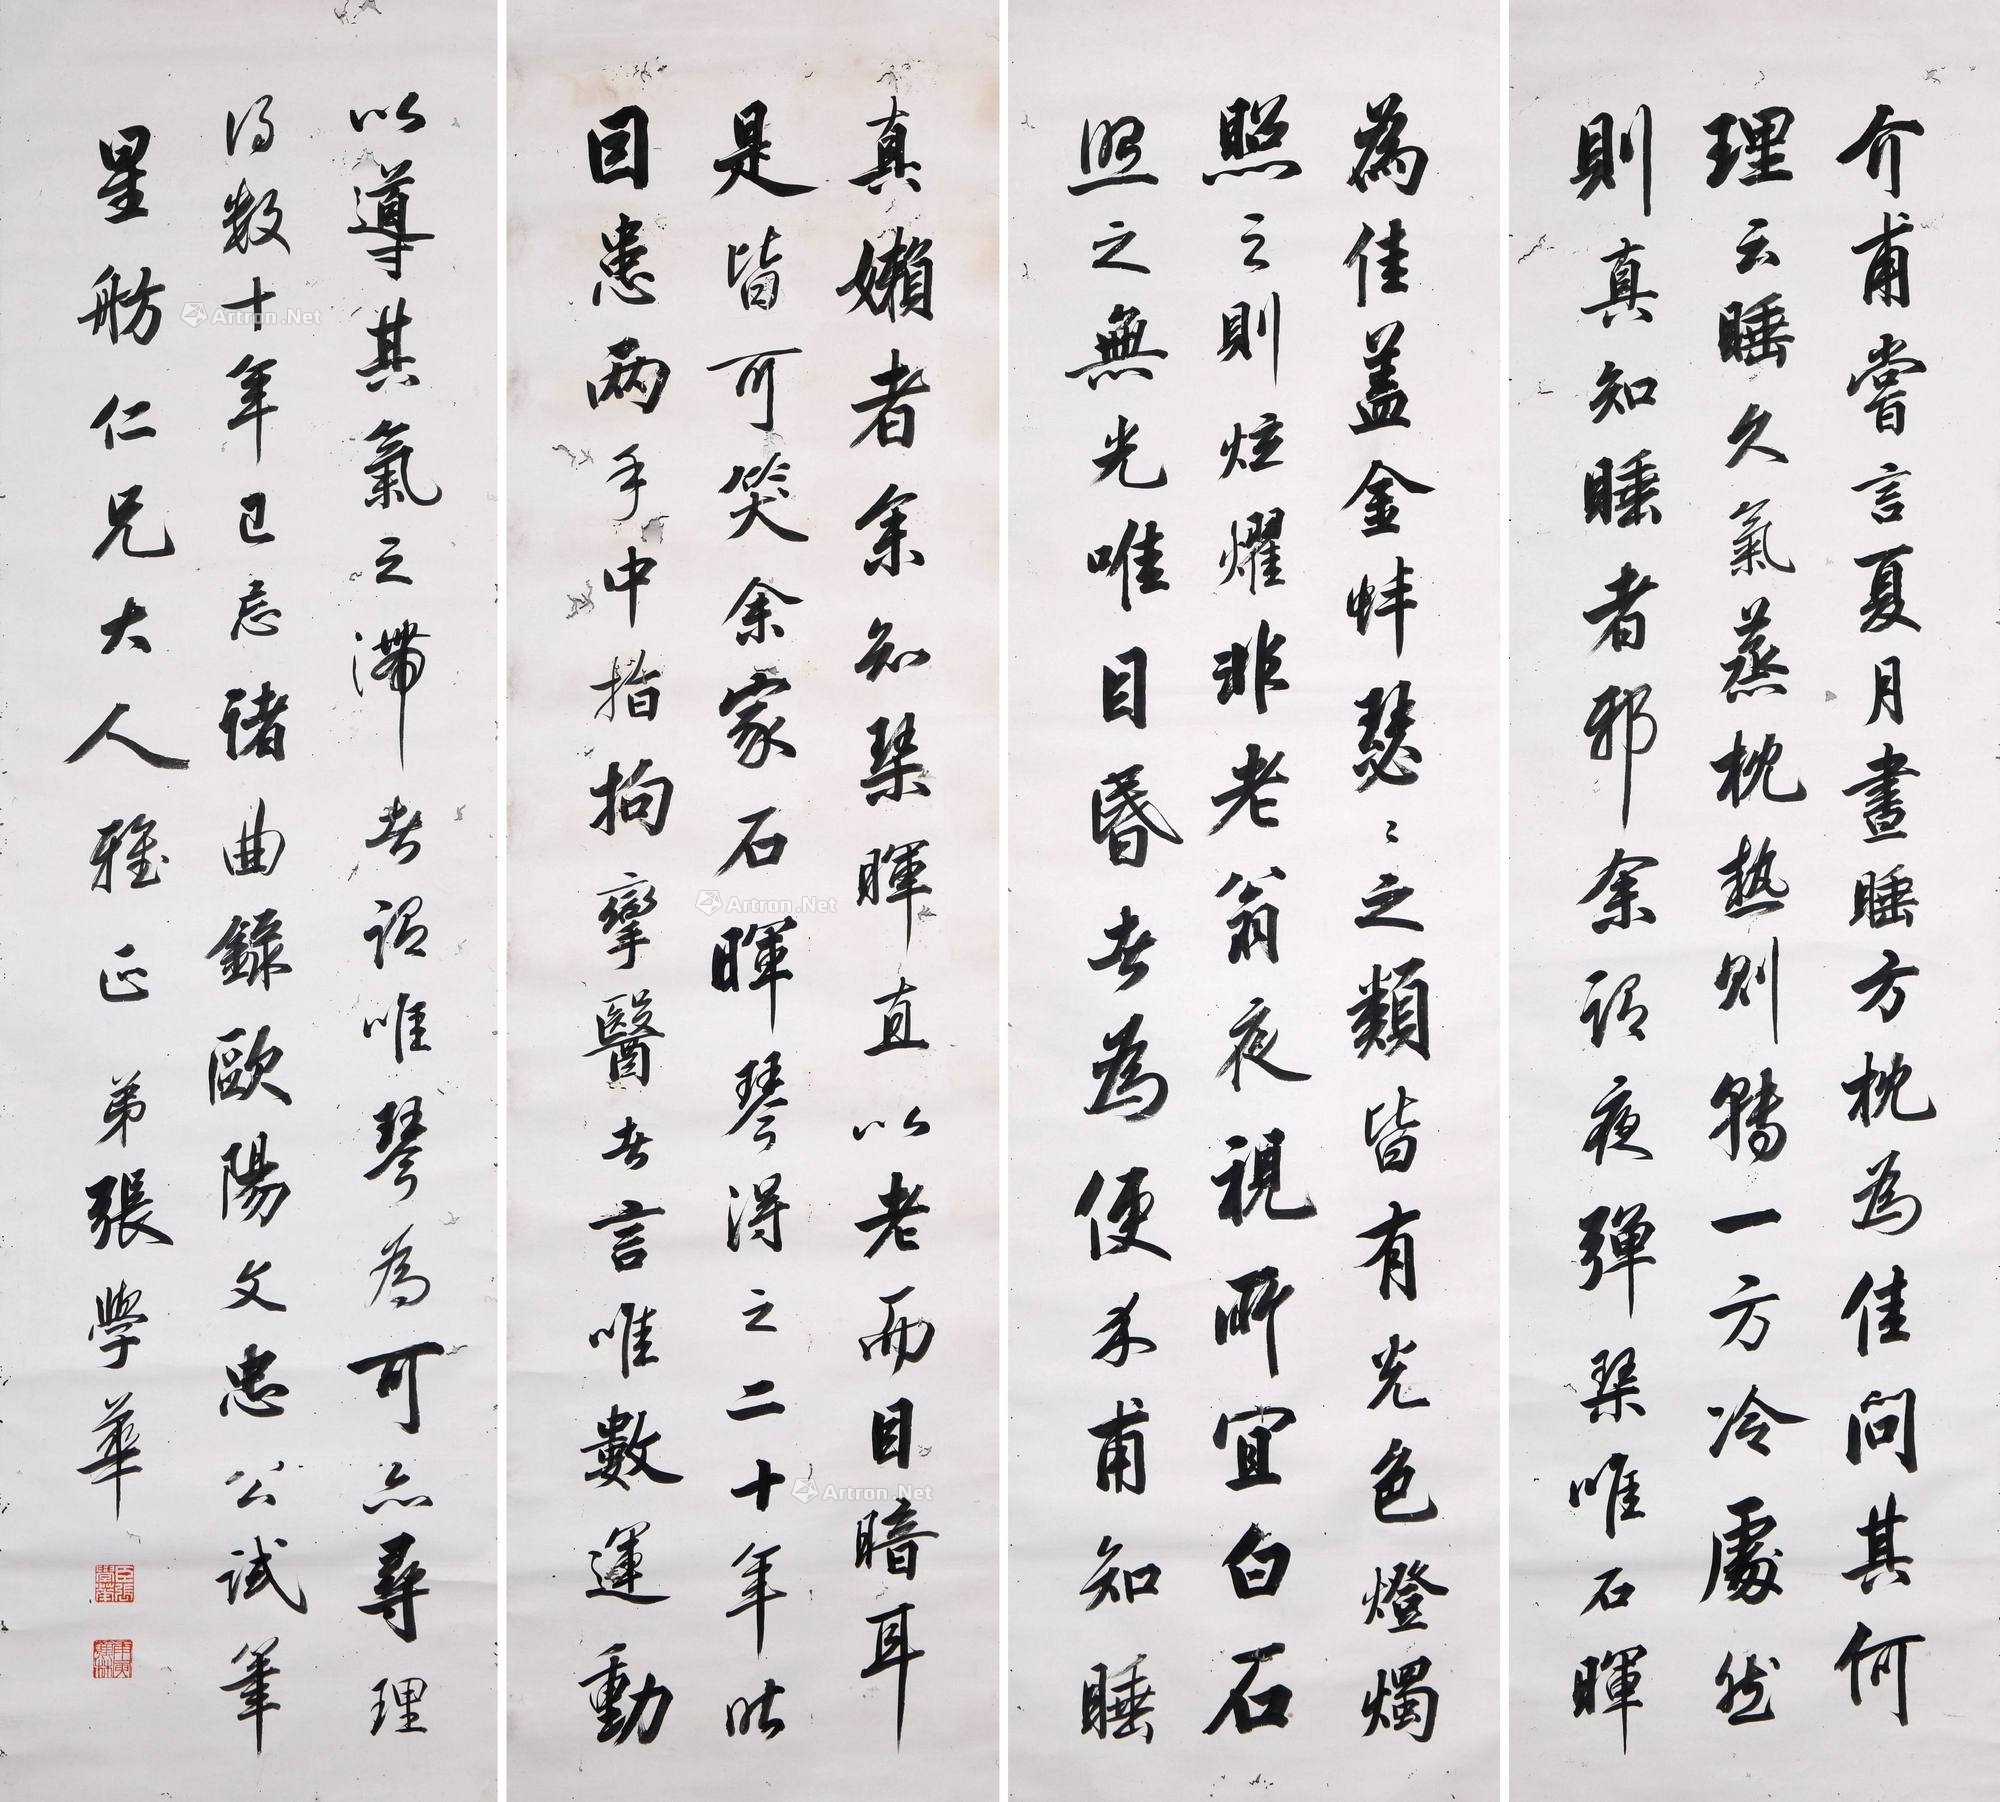 介甫嘗言夏月晝睡方枕為佳問其何
理云睡久氣蒸枕熱則轉一方冷處然
則真知睡者邪余謂夜彈琹唯石暉
為佳盖金蚌瑟〻之類皆有光色燈燭
照之則炫燿非老翁夜視所宜白石
照之無光唯目昬者為便介甫知睡
真嬾者余知琹暉直以老而目暗耳
是皆可笑余家石暉琴得之二十年昨
因患兩手中指拘攣醫者言唯數運動
以導其氣之滯者謂唯琴為可亦尋理
得數十年已忘諸曲錄歐陽文忠公試筆
星舫仁兄大人雅正 弟張學華
Artron.Net
Artron.Net
Artron.Net